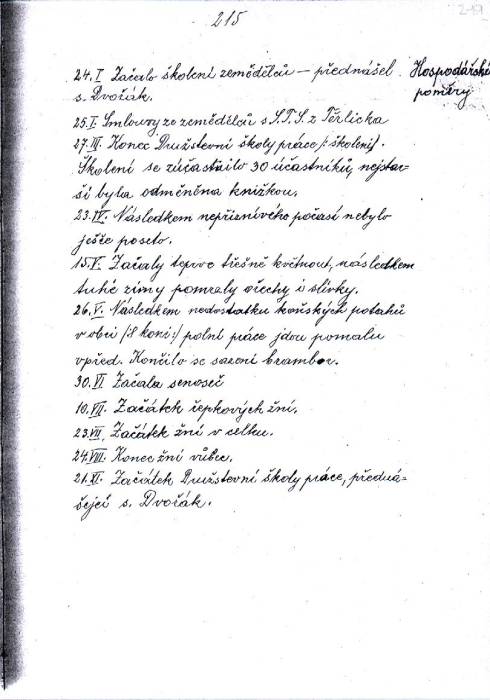 215
219
24.I Začalo školení zemědělců — přednášel
s. Dvořák.
Hospodářské
poměry
25.I. Smlouvy ze zemědělců s S.T.S. z Těrlicka
27.III. Konec Družstevní školy práce /: školení/.
Školení se zúčastnilo 30 účastníků, nejstar-
ší byla odměněna knížkou.
23.IV. Následkem nepříznivého počasí nebylo
ješče poseto.
15.V. Začaly teprve třešně kvétnout, následkem
tuhé zimy pomrzly ořechy i slívky.
26.V. Následkem nedostatku koňských potahů
v obci /8 koní:/ polní práce jdou pomalu
vpřed. Končilo se sazení brambor.
30.VI Začala senoseč
10.VII. Začátek řepkových žní.
23.VII. Začátek žní v celku.
24.VIII. Konec žní vůbec.
21.XI. Začátek Družstevní školy práce, předná-
šející s. Dvořák.